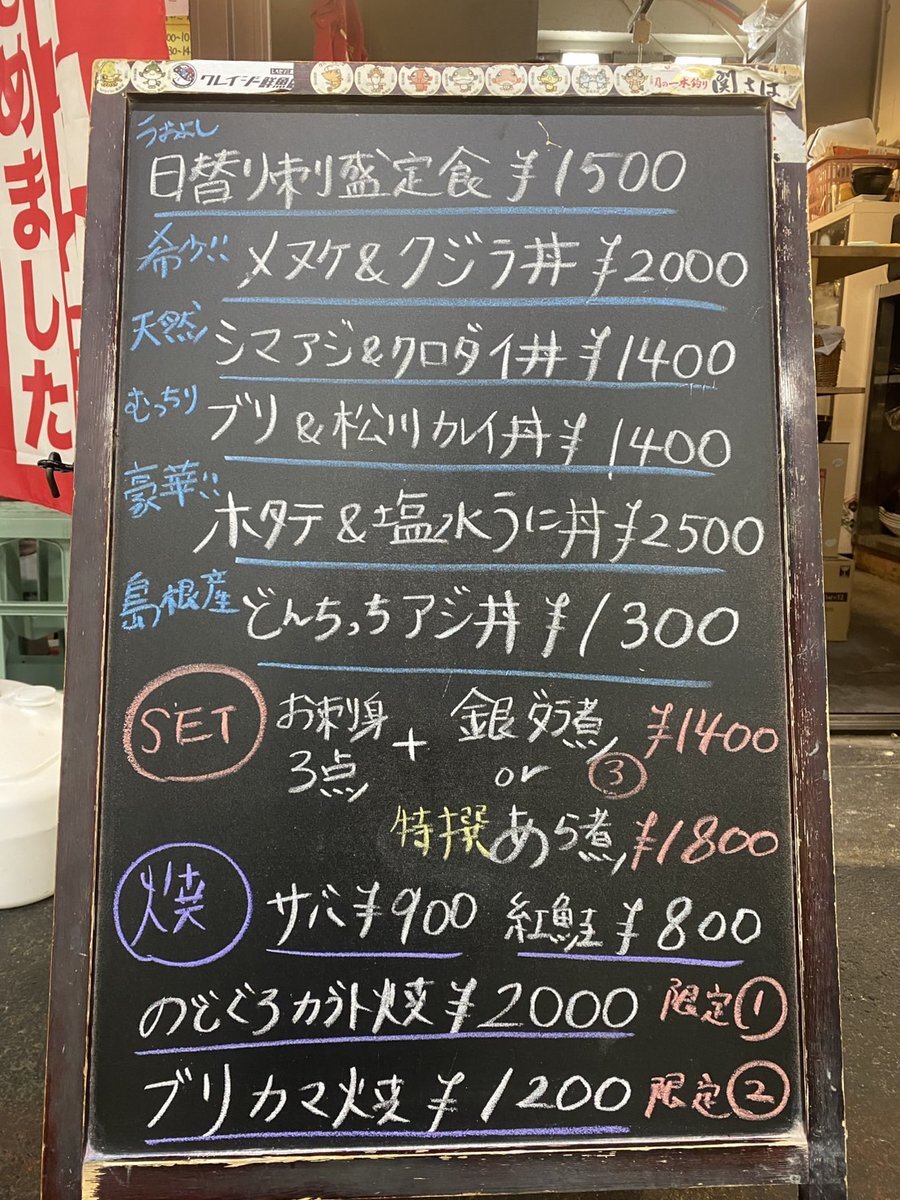 クレイジー鮮魚
月の一本釣り 関さば
めました
うおよし
日替り刺盛定食 ¥1500
希少!! メヌケ&クジラ丼 ¥2000
天然 シマアジ&クロダイ丼 ¥1400
むっちり ブリ&松川カレイ丼 ¥1400
豪華!! ホタテ&塩水うに丼 ¥2500
島根産 どんちっちアジ丼 ¥1300
SET お刺身3点 + 銀ダラ煮 ¥1400
or ③
特撰あら煮 ¥1800
焼 サバ ¥900 紅鮭 ¥800
のどぐろカブト焼 ¥2000 限定①
ブリカマ焼 ¥1200 限定②